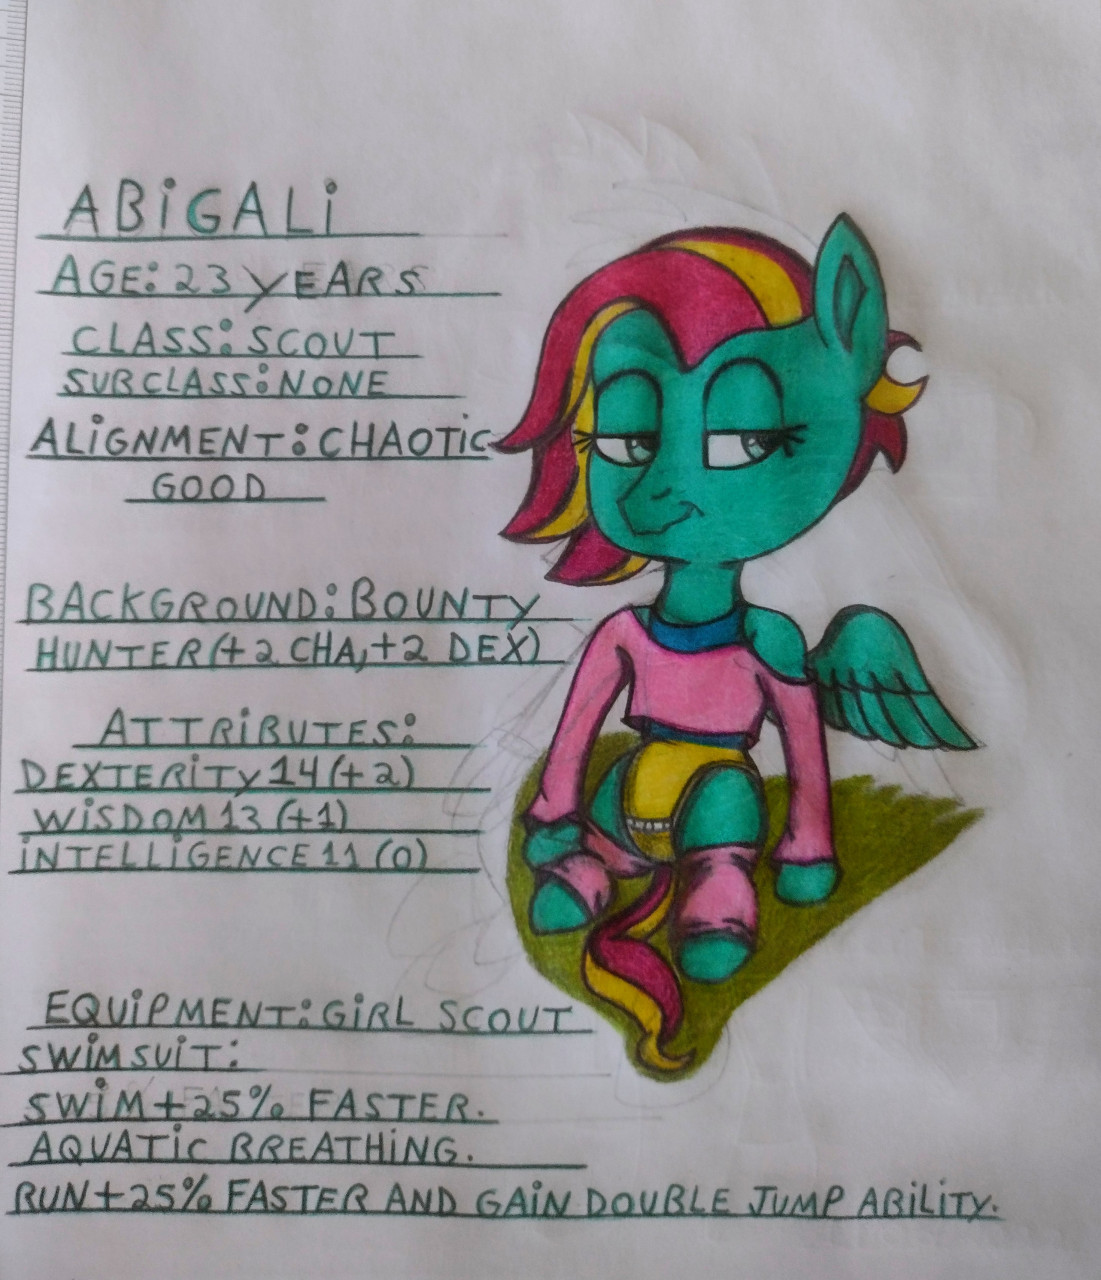 ABiGALi
AGE: 23 YEARS
CLASS: SCOUT
SUBCLASS: NONE
ALiGNMENT: CHAOTiC
GOOD
BACKGROUND: BOUNTY
HUNTER (+2 CHA, +2 DEX)
ATTRiBUTES:
DEXTERiTY 14 (+2)
WiSDOM 13 (+1)
iNTELLiGENCE 11 (0)
EQUiPMENT: GiRL SCOUT
SWiMSUiT:
SWiM +25% FASTER.
AQUATiC BREATHiNG.
RUN +25% FASTER AND GAiN DOUBLE JUMP ABiLiTY.